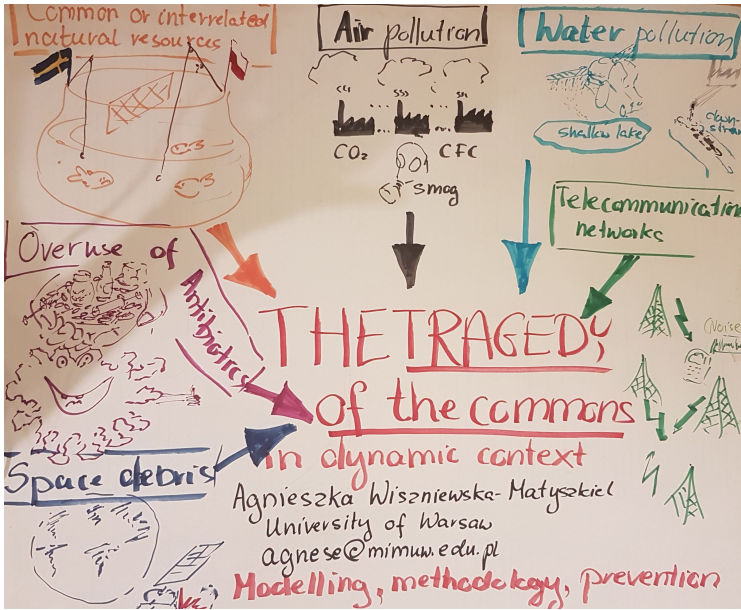 Common or interrelated
natural resources
Air pollution
Water pollution
CO₂
CFC
smog
shallow lake
down-
stream
Telecommunication
networks
Noise
Overuse of
Antibiotics
THE TRAGEDY
of the commons
in dynamic context
Space debris
Agnieszka Wiszniewska-Matyszkiel
University of Warsaw
agnese@mimuw.edu.pl
Modelling, methodology, prevention